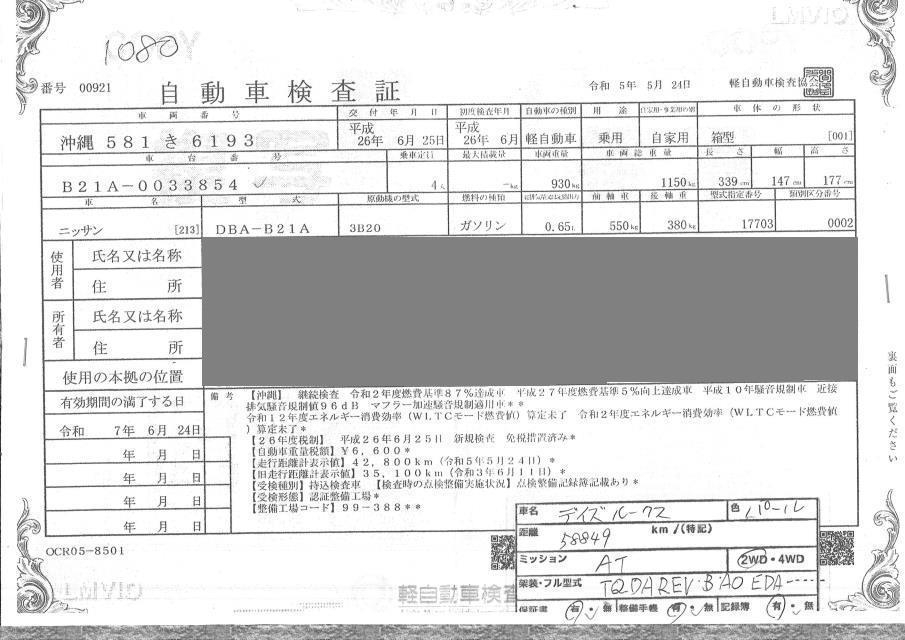 LMVIO
1080
番号 00921
自動車検査証
令和 5年 5月 24日
軽自動車検査協
車両番号 交付年月日 初度検査年月 自動車の種別 用途 自家用・事業用の別 車体の形状
沖縄 581 き 6193 平成 26年 6月 25日 平成 26年 6月 軽自動車 乗用 自家用 箱型 [001]
車台番号 乗車定員 最大積載量 車両重量 車両総重量 長さ 幅 高さ
B21A-0033854 4人 -kg 930kg 1150kg 339cm 147cm 177cm
車名 型式 原動機の型式 燃料の種類 前軸重 後軸重 型式指定番号 類別区分番号
ニッサン [213] DBA-B21A 3B20 ガソリン 0.65L 550kg 380kg 17703 0002
使用者 氏名又は名称
住所
所有者 氏名又は名称
住所
使用の本拠の位置
有効期間の満了する日
令和 7年 6月 24日
年 月 日
年 月 日
年 月 日
年 月 日
備考
【沖縄】 継続検査 令和2年度燃費基準87%達成車 平成27年度燃費基準5%向上達成車 平成10年騒音規制車 近接
排気騒音規制値96dB マフラー加速騒音規制適用車**
令和12年度エネルギー消費効率(WLTCモード燃費値)算定未了 令和2年度エネルギー消費効率(WLTCモード燃費値
)算定未了*
【26年度税制】 平成26年6月25日 新規検査 免税措置済み*
【自動車重量税額】¥6,600*
【走行距離計表示値】42,800km(令和5年5月24日)*
【旧走行距離計表示値】35,100km(令和3年6月11日)*
【受検種別】持込検査車 【検査時の点検整備実施状況】点検整備記録簿記載あり*
【受検形態】認証整備工場*
【整備工場コード】99-388**
裏面もご覧ください
OCR05-8501
LMVIO
軽自動車検査
車名 デイズルークス 色 パール
距離 58849 km/(特記)
ミッション AT 2WD・4WD
架装・フル型式 TQDAREV-BA0 EDA-----
保証書 有・無 整備手帳 有・無 記録簿 有・無